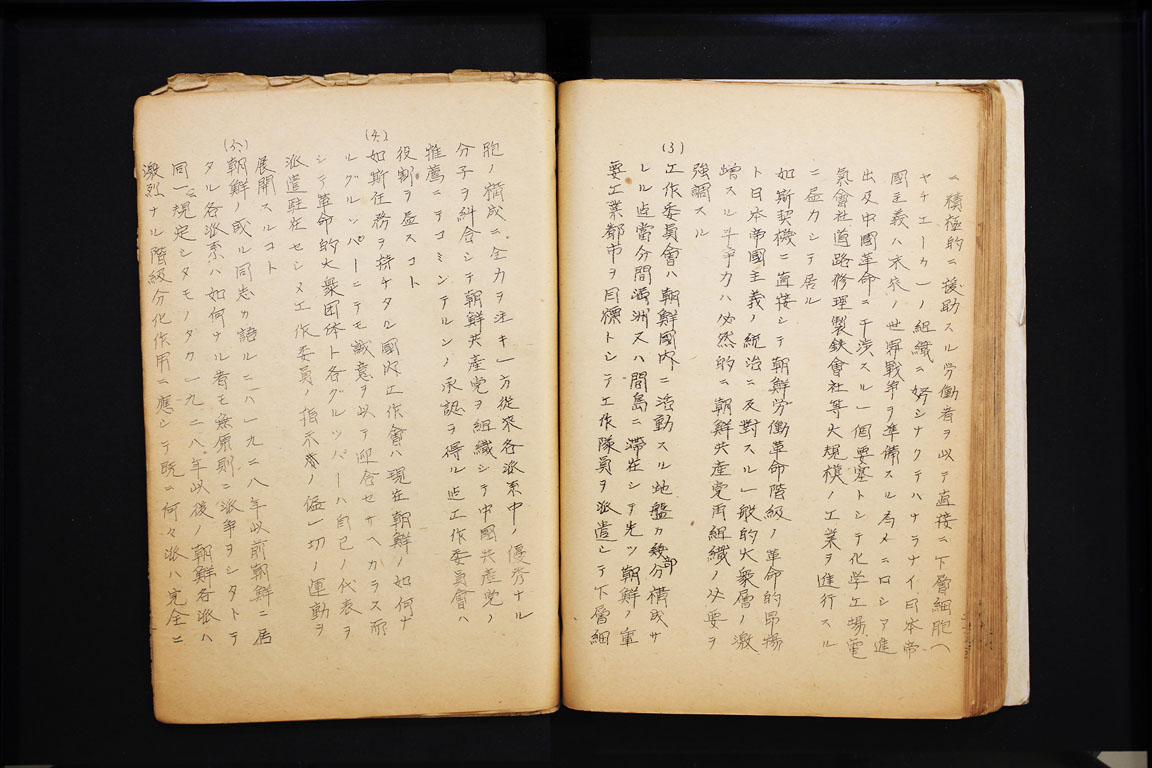 ニ積極的ニ援助スル労働者ヲ以テ直接ニ下層細胞(
ヤチエーカ)ノ組織ニ努シナクテハナラナイ日本帝
國主義ハ末來ノ世界戰爭ヲ準備スル為メニロシア進
出及中國革命ニ干渉スル一個要塞トシテ化学工場電
氣會社道路修理製鉄會社等大規模ノ工業ヲ進行スル
ニ尽力シテ居ル
如斯契機ニ直接シテ朝鮮労働革命階級ノ革命的昂揚
ト日本帝國主義ノ統治ニ反対スル一般的大衆層ノ激
増スル斗爭力ハ必然的ニ朝鮮共産党再組織ノ必要ヲ
強調スル
(3)
工作委員會ハ朝鮮國内ニ活動スル地盤カ幾部分構成サ
レル迠當分間満洲又ハ間島ニ滞在シテ先ツ朝鮮ノ重
要工業都市ヲ目標トシテ工作隊員ヲ派遣シテ下層細
胞ノ構成ニ全力ヲ注キ一方從来各派系中ノ優秀ナル
分子ヲ糾合シテ朝鮮共産党ヲ組織シテ中國共産党ノ
推薦ニテコミンテルンノ承認ヲ得ル迠工作委員會ハ
役割ヲ尽スコト
(4)
如斯任務ヲ持ツタル國内工作會ハ現在朝鮮ノ如何ナ
ルグルッパーニテモ誠意ヲ以テ迎合セサヘカラス而
シテ革命的大衆団体ト各グルッパーハ自己ノ代表ヲ
派遣駐在セシメ工作委員ノ指示ノ儘一切ノ運動ヲ
展開スルコト
朝鮮ノ或ル同志カ語ルニハ一九二八年以前朝鮮ニ居
タル各派系ハ如何ナル者モ無原則ニ派爭ヲシタトテ
同一規定シタモノタカ一九二八年以後ノ朝鮮各派ハ
激烈ナル階級分化作用ニ應シテ既ニ何々派ハ完全ニ